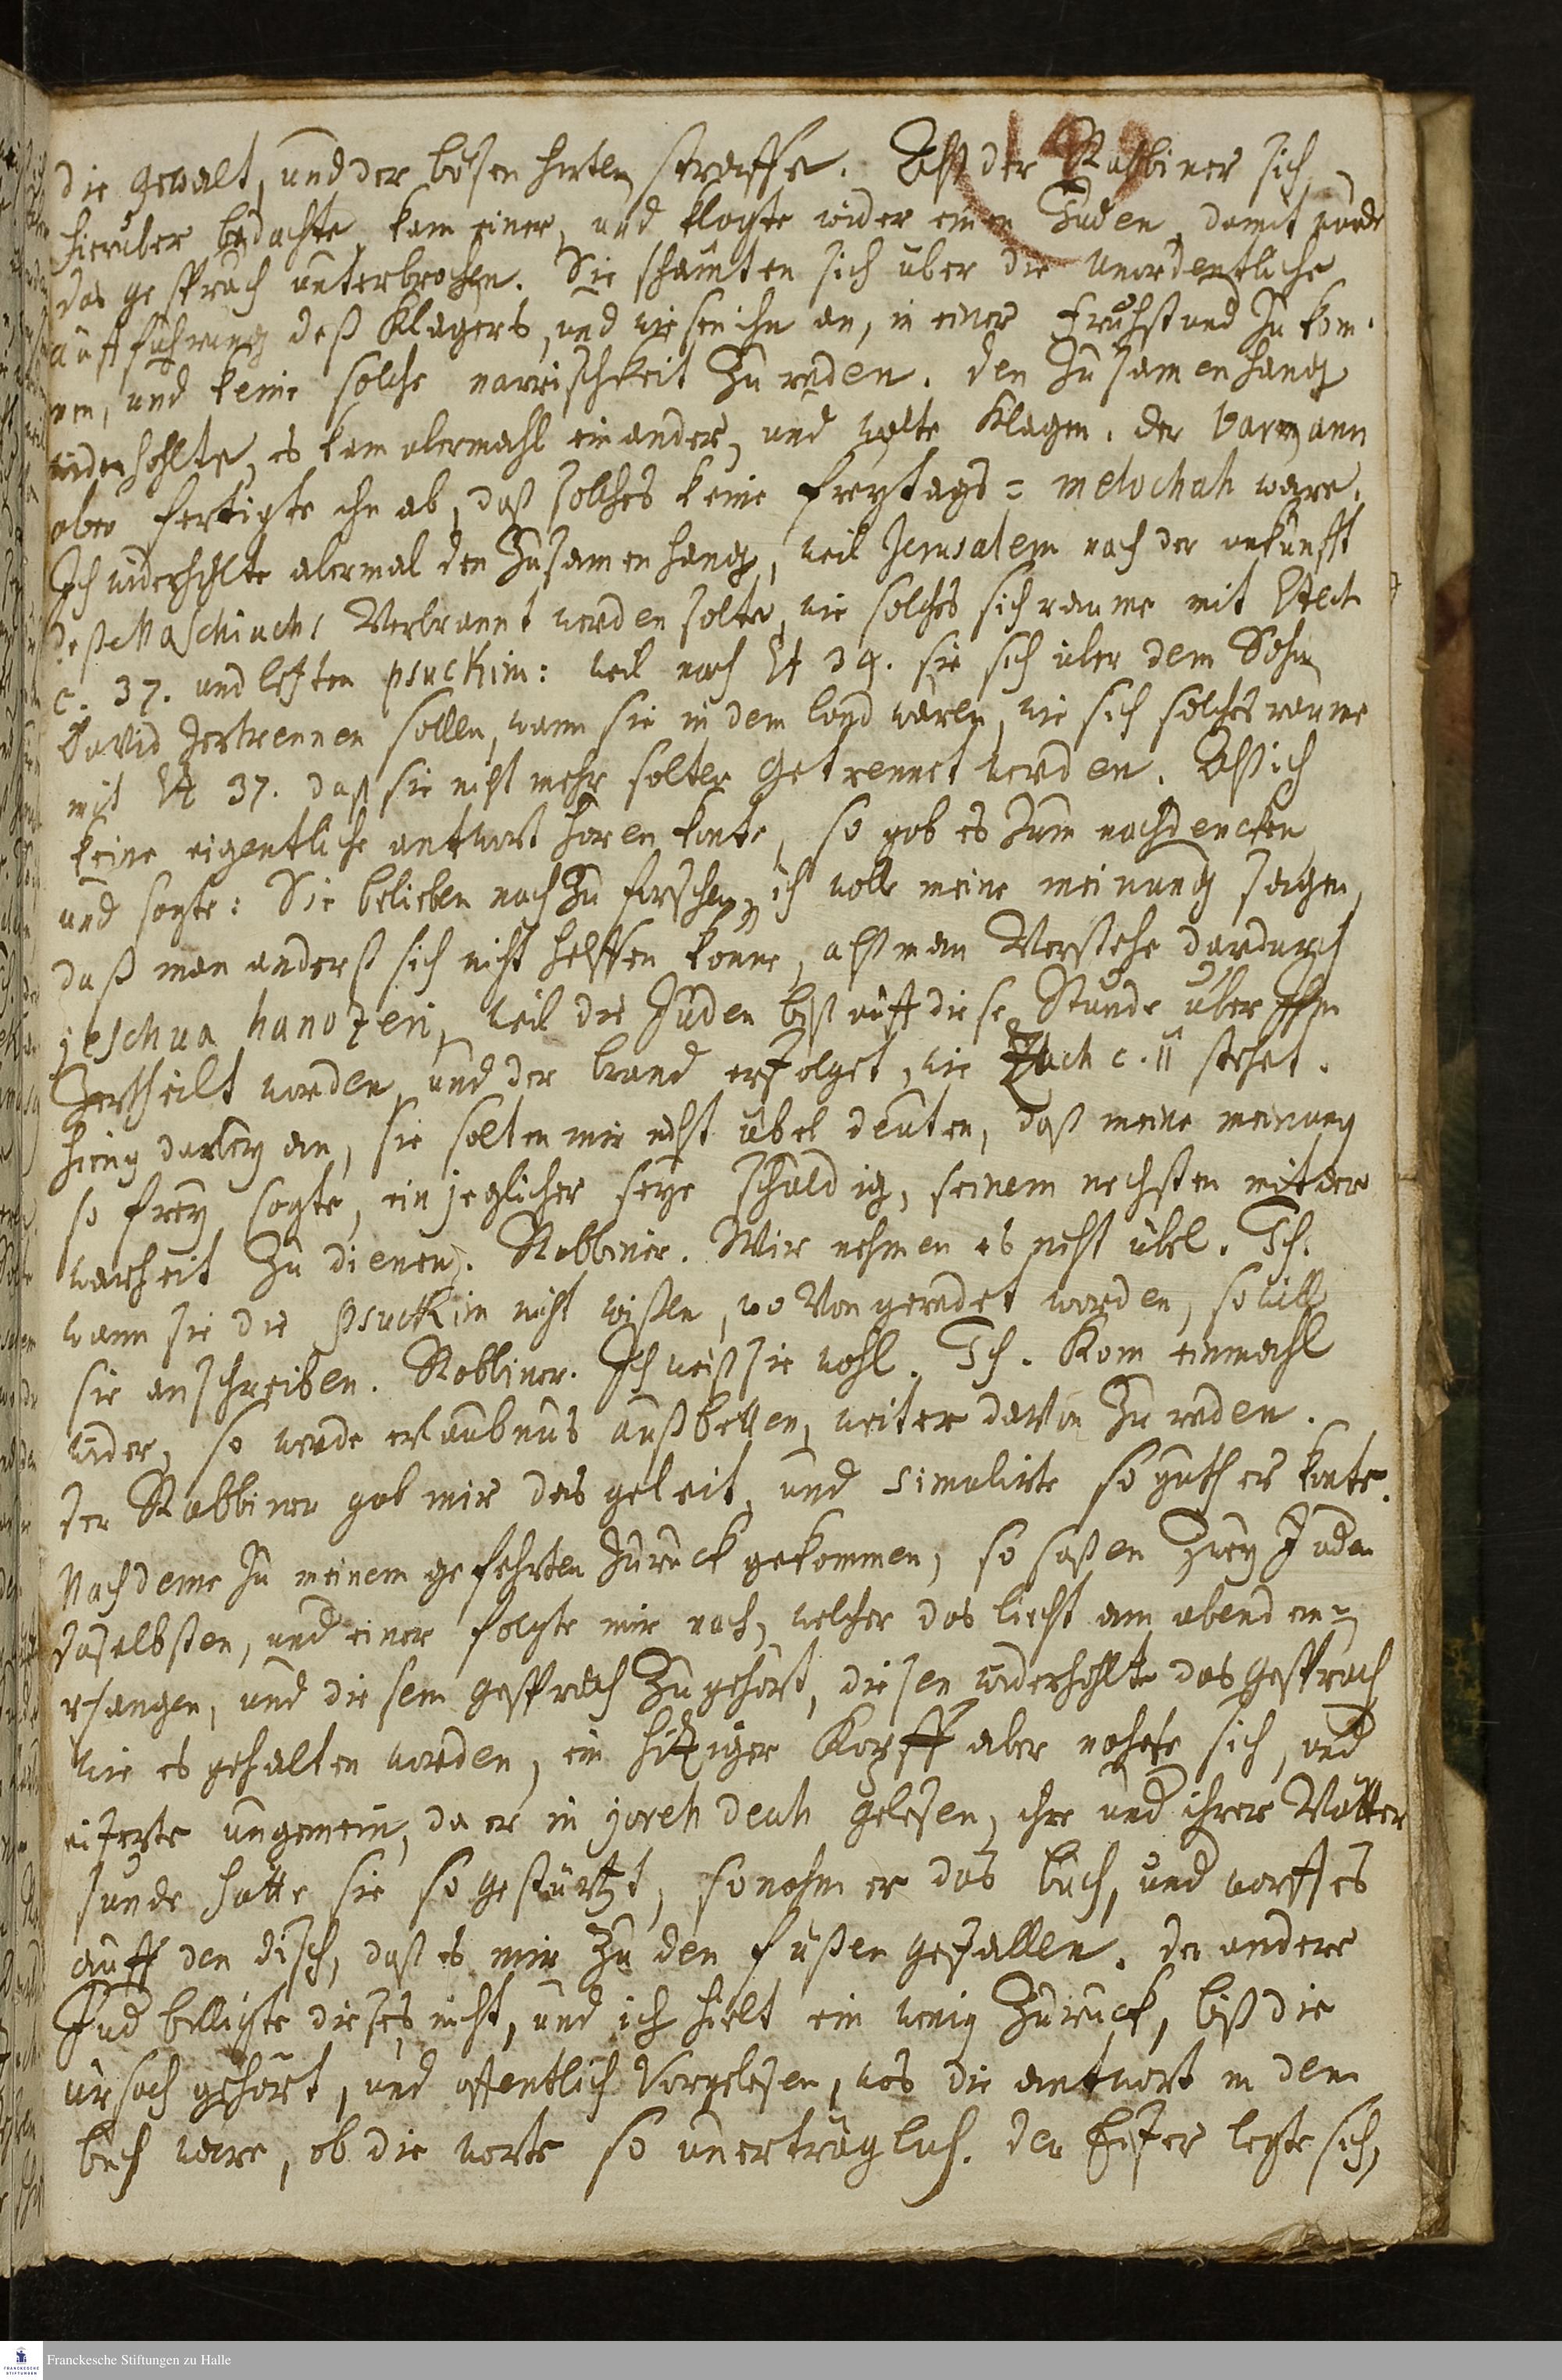 149
die gewalt, und der bösen hirten straffe. Alß der Rabbiner sich
hierüber bedachte, kam einer, und klagte wider einen Juden, damit wurde
das gespräch unterbrochen. Sie schämten sich über die unordentliche
aufführung deß Klägers, und wiesen ihn an, in einer Frühstund zu kom-
men, und keine solche narrischkeit zu reden. den zusamenhang
widerhohlte, es kam abermahl ein ander, und wolte klagen. der
aber fertigte ihn ab, daß solches keine freytags = melochah ware.
Ich widerhohlte abermal den zusamenhang, weil Jerusalem nach der ankunfft
deß Maschiachs Verbrannt werden solte, wie solches sich raume mit Ezech
c. 37. und letzten psuckim: weil nach Et 34. sie sich über dem Sohn
David zertrennen sollen, wann sie in dem land wären, wie sich solches raume
mit Et 37. daß sie nicht mehr solten getrennet werden. Alß ich
keine eigentliche antwort horen konte, so gab es zum nachdencken
und sagte: Sie belieben nach zu forschen, ich wolle meine meinung sagen,
daß man anderst sich nicht helffen könne, alß man Verstehe dardurch
jeschua hanozeri, weil die Juden biß auff diese Stunde über Ihm
zertheilt worden, und der brand erfolget, wie Zach c. 11 stehet.
hieng darbey an, sie solten mir nicht übel deuten, daß meine meinung
so frey sagte, ein jeglicher seye schuldig, seinem nechsten mit der
warheit zu dienen. Rabbiner. Wir nehmen es nicht übel. Ich.
wann sie die psuckim nicht wißen, wo Von geredet worden, so will
sie anschreiben. Rabbiner. Ich weiß sie wohl. Ich. Kom einmahl
wider, so werde erlaubnus außbetten, weiter davon zu reden.
der Rabbiner gab mir das geleit, und simulirte so guth er konte.
Nachdeme zu meinem gefehrten zuruck gekommen, so saßen zwey Juden
daselbsten, und einer folgte mir nach, welcher das liecht am abend em-
pfangen, und diesem gespräch zugehört, diesen widerhohlte das gespräch
wie es gehalten worden, ein hitziger Kopff aber nahete sich, und
eiferte ungemein, da er in joreh deah gelesen, ihre und ihrer Vätter
sunde hatte sie so gestürtzt, so nahm er das buch, und warff es
auff den disch, daß es mir zu den fußen gefallen. der andere
Jud billigte dieses nicht, und ich hielt ein wenig zuruck, biß die
ursach gehört, und offentlich Vorgelesen, was die antwort in dem
buch ware, ob die worte so unerträglich. der Eifer legte sich,
FRANCKESCHE STIFTUNGEN
Franckesche Stiftungen zu Halle